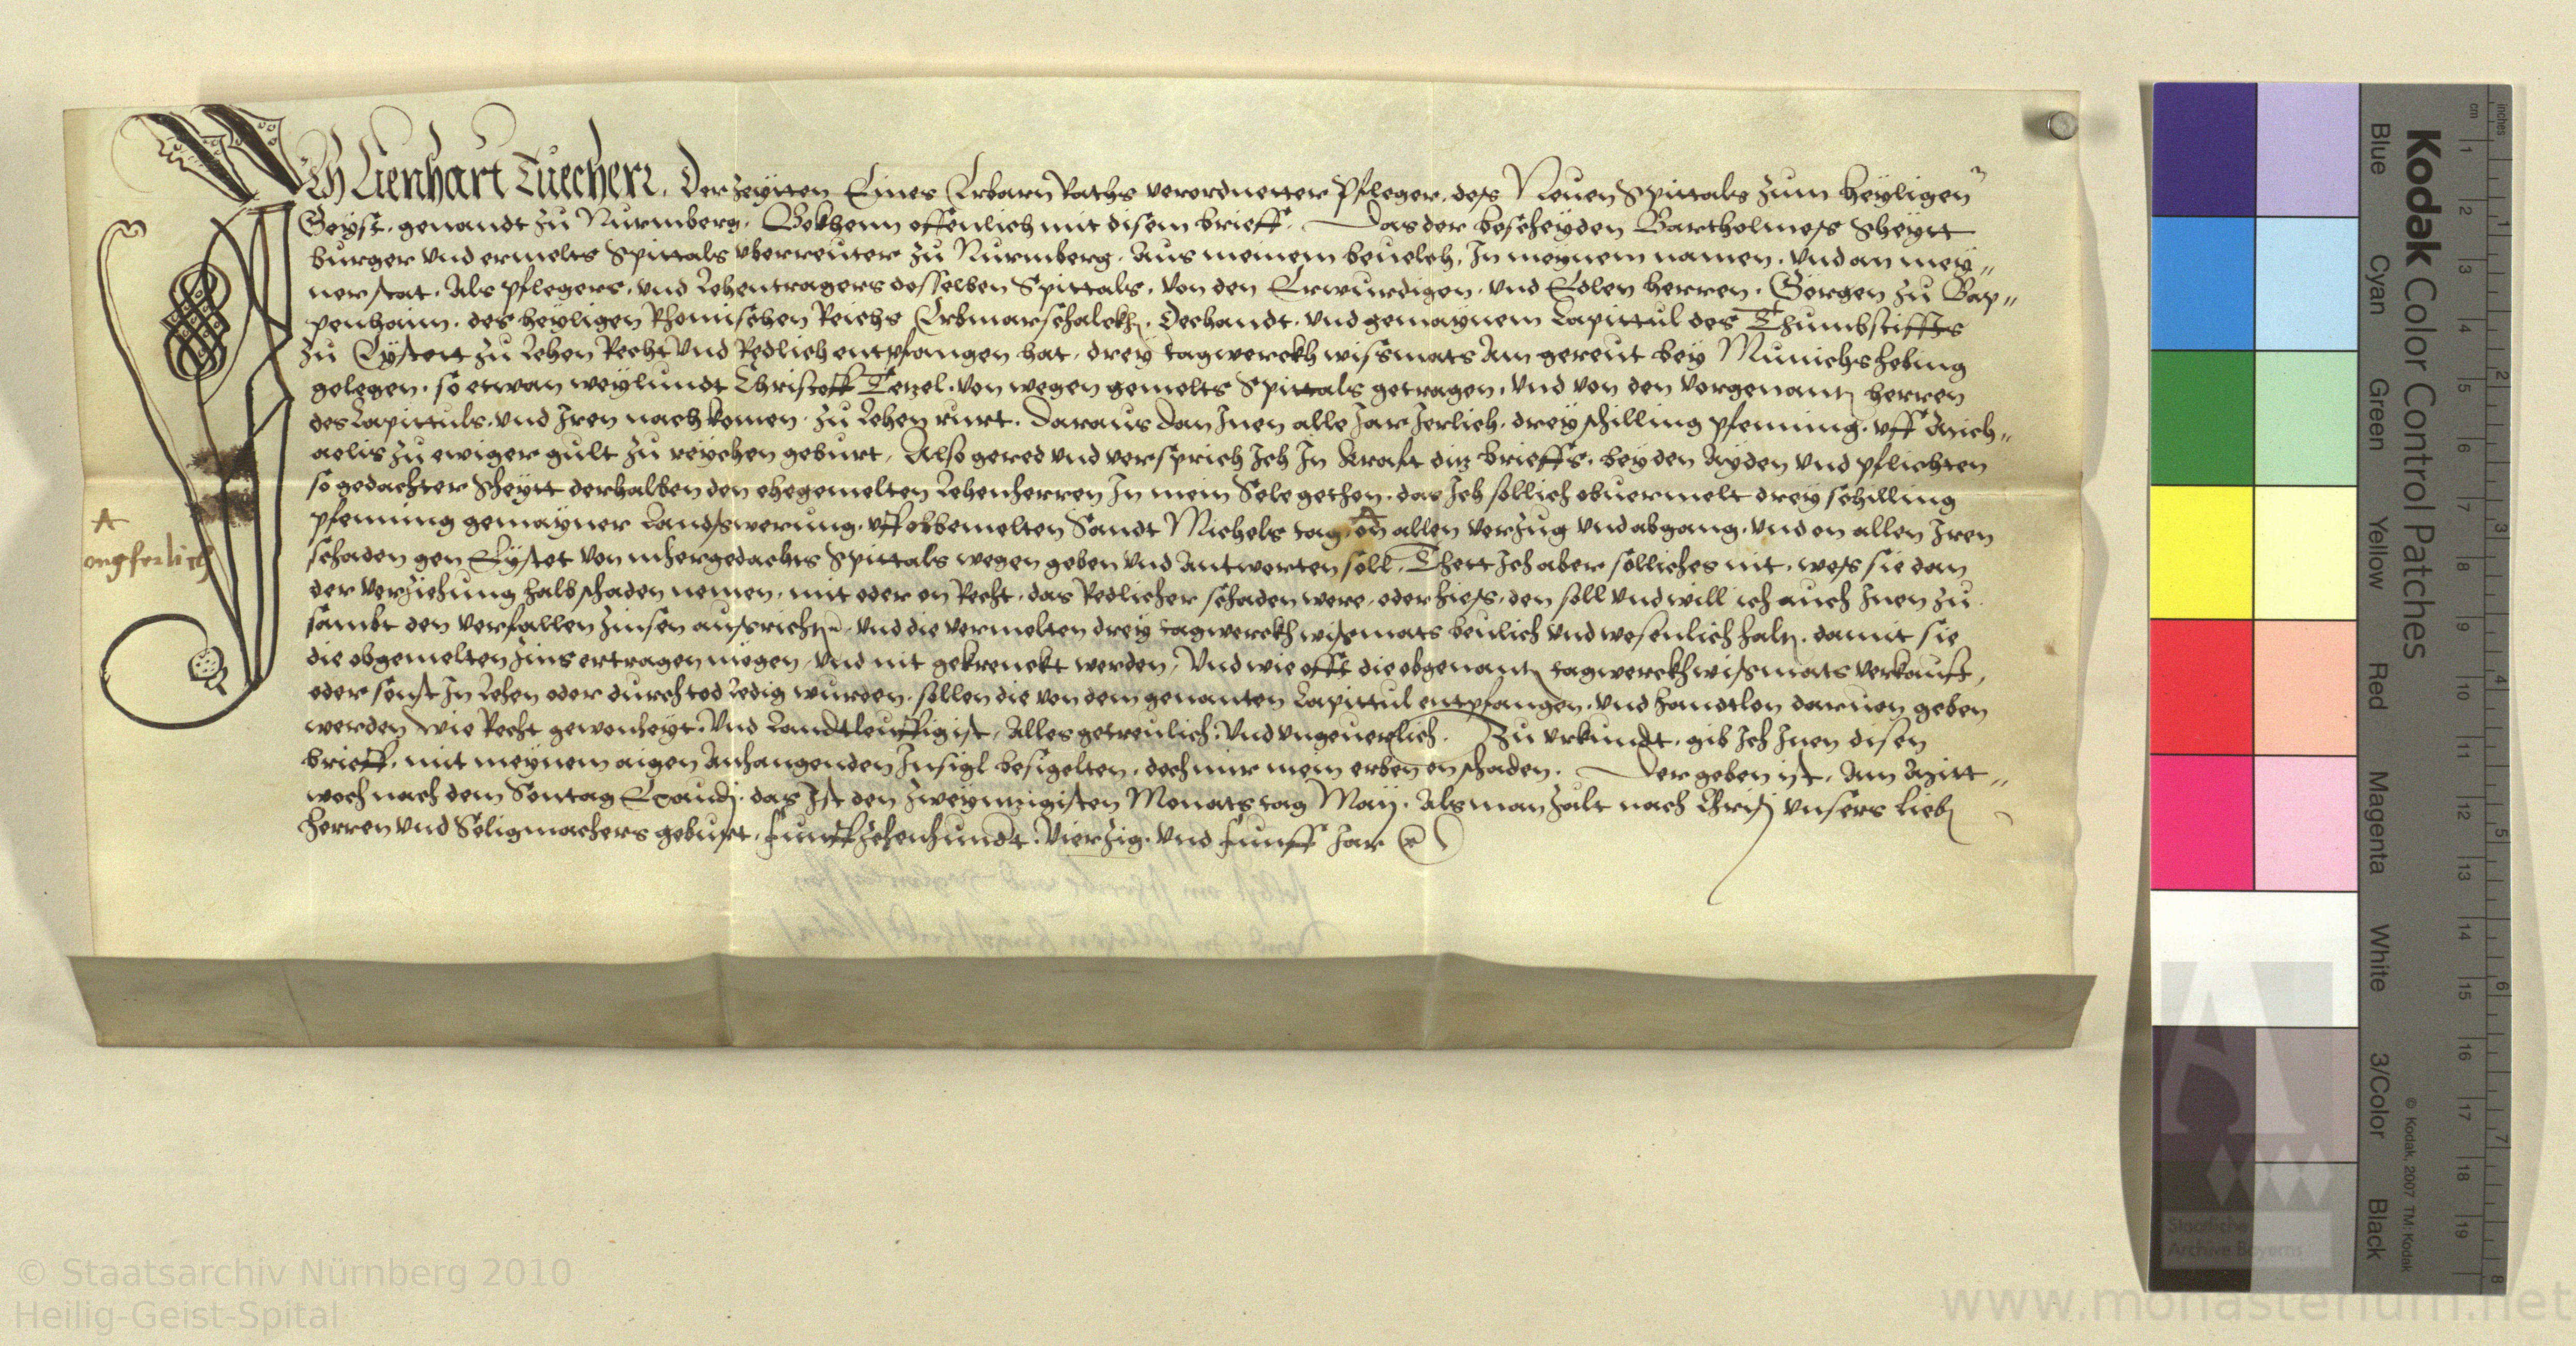 Ich Lienhart Tuecherr. Der zeytten Eines Erbarn Raths verordnetter Pfleger, deß Neuen Spittals zum heyligen
Geyst, genandt zu Nurmberg. Bekhenn offenlich mit disem brieff. Das der bescheyden Bartholmeß Scheytt
burger vnd ermelts Spittals vberreuter zu Nurmberg. Aus meinem beuelch, In meynem namen, vnd an mey„
ner stat. Als pflegers, vnd Lehentragers desselben Spittals, von den Erwurdigen, vnd Edlen herren. Görgen zu Bap„
penhaim, des heyligen Rhomischen Reichs Erbmarschalckh, Dechandt, vnd gemaynem Capittul des Thumbstiffts
zu Eystett zu Lehen Recht vnd Redlich entpfangen hat, drey tagwerckh wissmats Am gereut bey Munichszeling
gelegen, so etwan weylundt Christoff Tetzel, von wegen gemelts Spittals getragen, vnd von den vorgenantn herren
des Capittuls, vnd Iren nachkomen, zu Lehen rurt. Daraus dan Inen alle Jar Jerlich, drey schilling pfenning, vff Mich„
aelis zu ewiger gult zu reychen geburt, Also gered vnd versprich Ich In Kraft ditz brieffs, bey den Ayden vnd pflichten
so gedachter Scheytt derhalben den ehegemelten Lehenherren In mein Sele gethon, das Ich sollich obuermelt drey schilling
pfenning gemayner Landswerung, vff obbemelten Sandt Michels tag, A on allen verzug vnd abgang, vnd on allen Iren
A
ongferlich
schaden gen Eystet von mhergedachts Spittals wegen geben vnd Antworten soll, Thett Ich aber solliches nit, weß sie dan
der verziehung halb schaden nemen, mit oder on Recht, das Redlicher schaden were, oder hieß, den soll vnd will ich auch Inen zu
sambt den verfallen zinsen außrichtn, vnd die vermelten drey tagwerckh wißmats beulich vnd wesenlich haltn, damit sie
die obgemelten zins ertragen mögen, vnd nit gekrenckt werden, Vnd wie offt die obgenantn tagwerckh wißmats verkaufft,
oder sonst In Lehen oder durch tod Ledig wurden, sollen die von dem genanten Capittul entpfangen, vnd handtlon daruon geben
werden, wie Recht gewonheyt, Vnd Landtleuffig ist, Alles getreulich, Vnd vngeuerlich. Zu vrkundt, gib Ich Inen disen
brieff, mit meynem aigen Anhangenden Insigl besigelten, doch mir mein erben on schaden. Der geben ist, Am Mitt„
woch nach dem Sontag Exaudj, das Ist den zweyntzigisten Monats tag May. Als man zalt nach Christj vnsers liebn
Herren vnd Seligmachers geburt, funffzehenhundt, Vierzig, vnd funff Jar
Kodak Color Control Patches
Blue Cyan Green Yellow Red Magenta White 3/Color Black
© Kodak, 2007 TM: Kodak
cm 1 2 3 4 5 6 7 8 9 10 11 12 13 14 15 16 17 18 19
inches 1 2 3 4 5 6 7 8
Staatliche
Archive Bayerns
© Staatsarchiv Nürnberg 2010
Heilig-Geist-Spital
www.monasterium.net